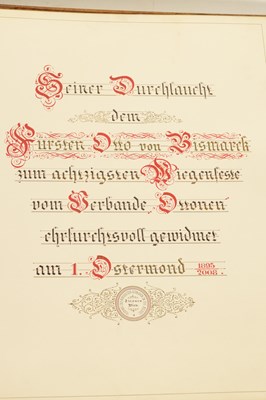 Seiner Durchlaucht
dem
Fürsten Otto von Bismarck
zum achtzigsten Wiegenfeste
vom Verbande Ottonen
ehrfurchtsvoll gewidmet
am 1. Ostermond 1895
2008.